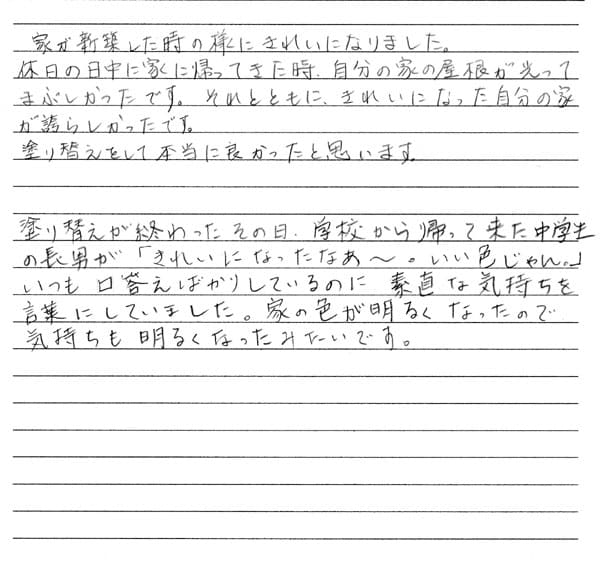 家が新築した時の様にきれいになりました。
休日の日中に家に帰ってきた時、自分の家の屋根が光って
まぶしかったです。それとともに、きれいになった自分の家
が誇らしかったです。
塗り替えをして本当に良かったと思います。
塗り替えが終わったその日、学校から帰って来た中学生
の長男が「きれいになったなあ〜。いい色じゃん。」
いつも口答えばかりしているのに素直な気持ちを
言葉にしていました。家の色が明るくなったので
気持ちも明るくなったみたいです。